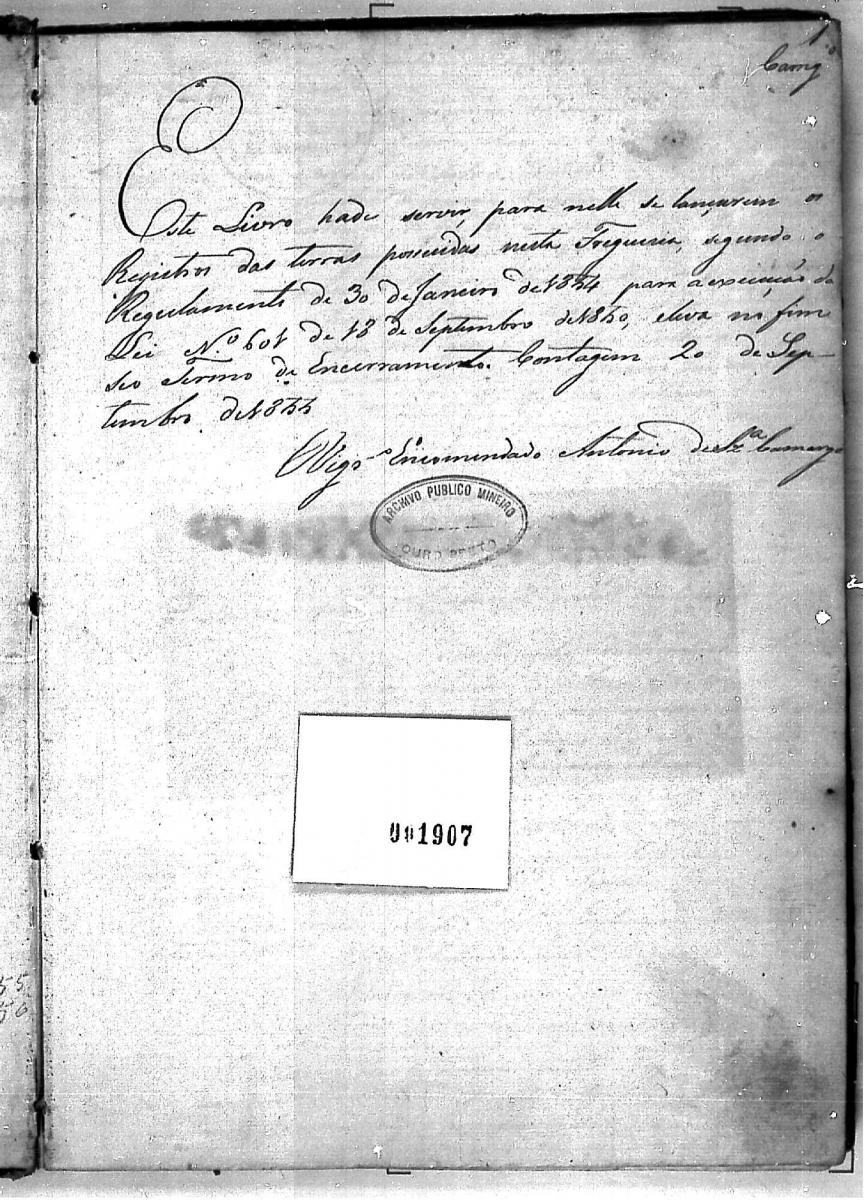 1
Camgo
Este Livro hade servir, para nelle se lançarem os
Registros das terras possuidas nesta Freguesia, segundo o
Regulamento de 30 de Janeiro de 1854 para a execução da
Lei N.º 601 de 18 de Septembro de 1850, e leva no fim
seo Termo de Encerramento. Contagem 20 de Sep-
tembro de 1855
O Vigr.º Encomendado Antonio de Sz.ª Camargo
ARCHIVO PUBLICO MINEIRO
OURO PRETO
001907
55
56